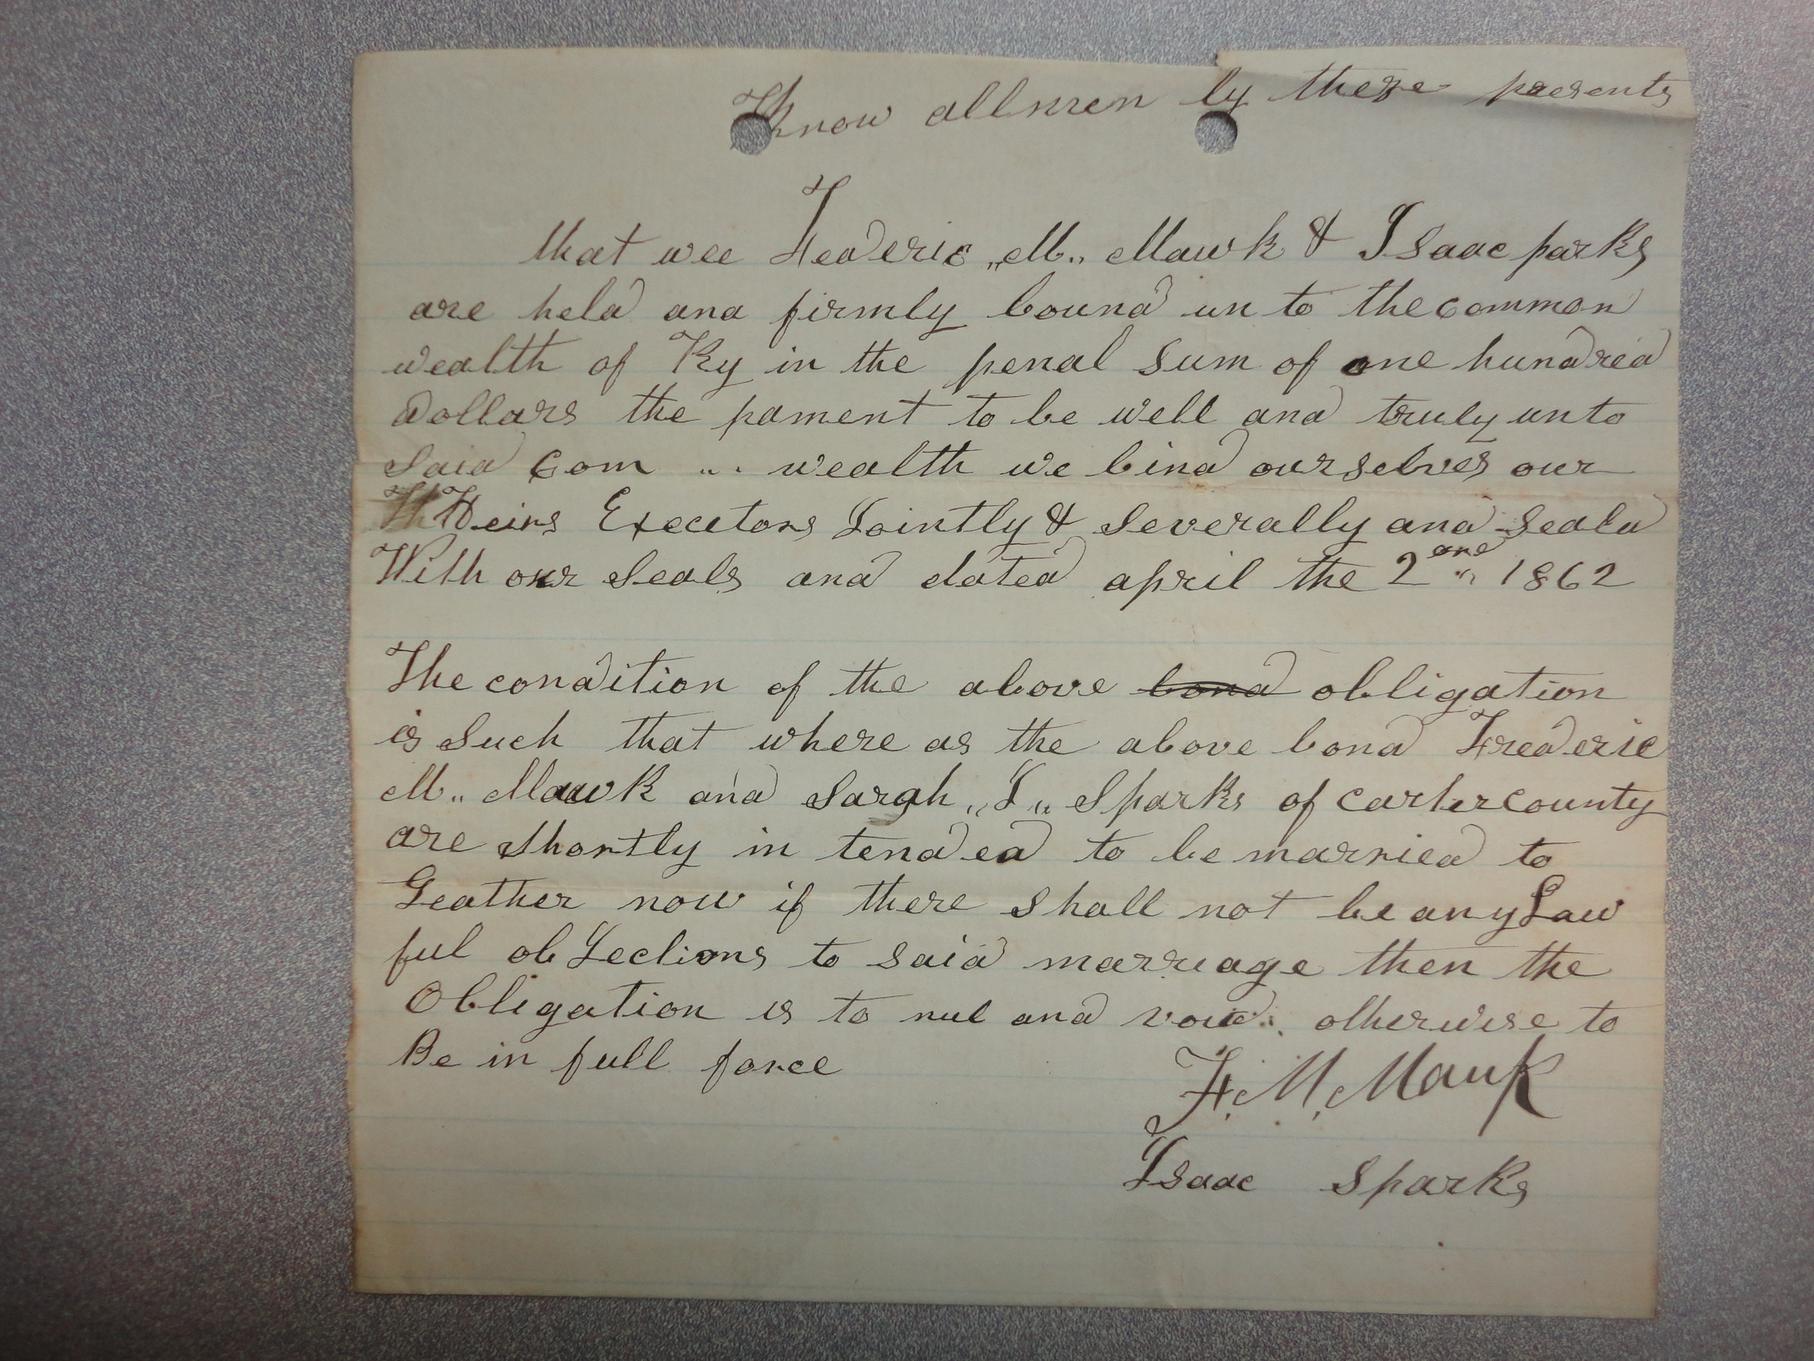 Know all men by these presents
that wee Federic „M„ Mawk & Isaac parks
are held and firmly bound un to the common
wealth of Ky in the penal Sum of one hundred
dollars the pament to be well and truly unto
Said Com wealth we bind ourselves our
Heirs Execetors Jointly & Severally and Seald
With our Seals and dated april the 2ond 1862
The condition of the above bond obligation
is Such that where as the above bond Frederic
M„ Mawk and Sarah „J„ Sparks of carter county
are Shortly in tended to be married to
Geather now if there Shall not be any Law
ful ob Jections to Said marriage then the
Obligation is to nul and void otherwise to
Be in full force
F. M. Mauk
Isaac Sparks